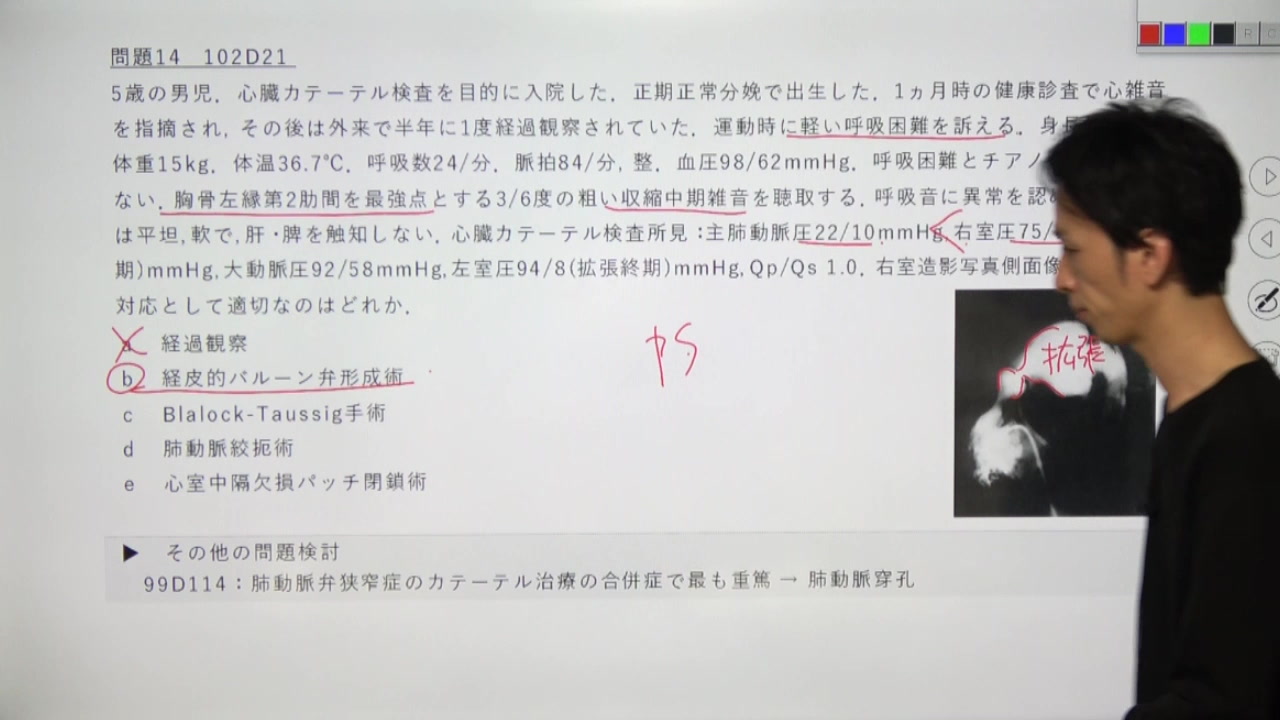 問題14 102D21
5歳の男児．心臓カテーテル検査を目的に入院した．正期正常分娩で出生した．1ヵ月時の健康診査で心雑音
を指摘され, その後は外来で半年に1度経過観察されていた．運動時に軽い呼吸困難を訴える．身長
体重15kg．体温36.7℃．呼吸数24/分．脈拍84/分, 整．血圧98/62mmHg．呼吸困難とチアノ
ない．胸骨左縁第2肋間を最強点とする3/6度の粗い収縮中期雑音を聴取する．呼吸音に異常を認め
は平坦, 軟で, 肝・脾を触知しない．心臓カテーテル検査所見：主肺動脈圧22/10mmHg, 右室圧75/
期)mmHg, 大動脈圧92/58mmHg, 左室圧94/8(拡張終期)mmHg, Qp/Qs 1.0．右室造影写真側面像
対応として適切なのはどれか．
a 経過観察
b 経皮的バルーン弁形成術
c Blalock-Taussig手術
d 肺動脈絞扼術
e 心室中隔欠損パッチ閉鎖術
拡張
▶ その他の問題検討
99D114：肺動脈弁狭窄症のカテーテル治療の合併症で最も重篤 → 肺動脈穿孔